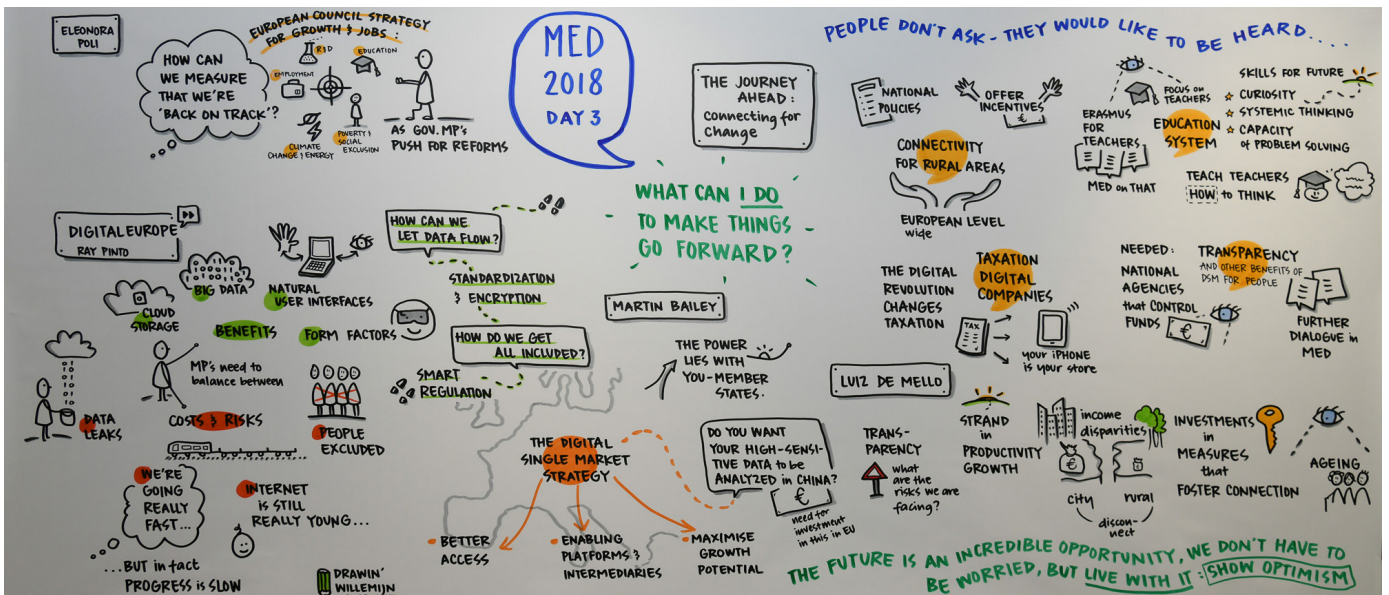 ELEONORA
POLI
HOW CAN
WE MEASURE
THAT WE'RE
'BACK ON TRACK'?
EUROPEAN COUNCIL STRATEGY
FOR GROWTH & JOBS:
R&D
EDUCATION
EMPLOYMENT
CLIMATE
CHANGE & ENERGY
POVERTY &
SOCIAL
EXCLUSION
AS GOV. MP'S
PUSH FOR REFORMS
MED
2018
DAY 3
THE JOURNEY
AHEAD:
connecting for
Change
WHAT CAN I DO
TO MAKE THINGS
GO FORWARD?
PEOPLE DON'T ASK - THEY WOULD LIKE TO BE HEARD....
NATIONAL
POLICIES
OFFER
INCENTIVES
€
CONNECTIVITY
FOR RURAL AREAS
EUROPEAN LEVEL
wide
ERASMUS
FOR
TEACHERS
MED on THAT
FOCUS on
TEACHERS
EDUCATION
SYSTEM
SKILLS FOR FUTURE
CURIOSITY
SYSTEMIC THINKING
CAPACITY
of PROBLEM SOLVING
TEACH TEACHERS
HOW to THINK
DIGITALEUROPE
RAY PINTO
BIG DATA
CLOUD
STORAGE
NATURAL
USER INTERFACES
BENEFITS
FORM FACTORS
HOW CAN WE
LET DATA FLOW?
STANDARDIZATION
& ENCRYPTION
HOW DO WE GET
ALL INCLUDED?
SMART
REGULATION
DATA
LEAKS
MP'S need to
balance between
COSTS & RISKS
PEOPLE
EXCLUDED
WE'RE
GOING
REALLY
FAST...
...BUT in fact
PROGRESS is SLOW
INTERNET
is STILL
REALLY YOUNG...
DRAWIN'
WILLEMIJN
MARTIN BAILEY
THE POWER
LIES WITH
YOU-MEMBER
STATES.
THE DIGITAL
SINGLE MARKET
STRATEGY
BETTER
ACCESS
ENABLING
PLATFORMS &
INTERMEDIARIES
MAXIMISE
GROWTH
POTENTIAL
DO YOU WANT
YOUR HIGH-SENSI-
TIVE DATA to be
ANALYZED in CHINA?
€
need for
investment
in this in EU
THE DIGITAL
REVOLUTION
CHANGES
TAXATION
TAXATION
DIGITAL
COMPANIES
TAX
your iPHONE
is your store
NEEDED:
NATIONAL
AGENCIES
that CONTROL
FUNDS
€
TRANSPARENCY
AND OTHER BENEFITS OF
DSM FOR PEOPLE
FURTHER
DIALOGUE in
MED
LUIZ DE MELLO
TRANS-
PARENCY
what
are the
risks we are
facing?
STRAND
in
PRODUCTIVITY
GROWTH
income
disparities
€
city
rural
discon-
nect
INVESTMENTS
in
MEASURES
that
FOSTER CONNECTION
AGEING
THE FUTURE IS AN INCREDIBLE OPPORTUNITY, WE DON'T HAVE TO
BE WORRIED, BUT LIVE WITH IT: SHOW OPTIMISM